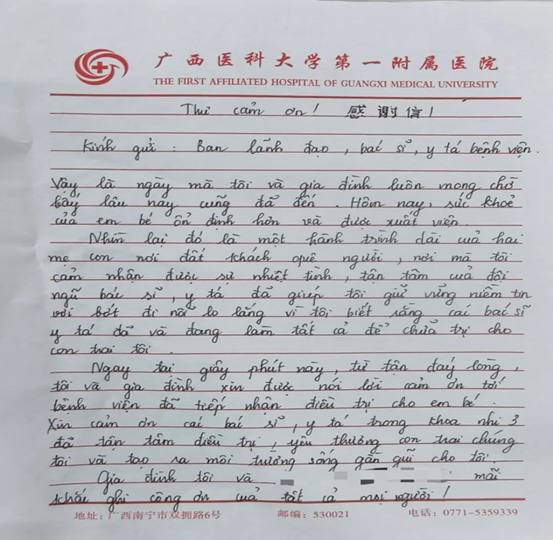 广西医科大学第一附属医院
THE FIRST AFFILIATED HOSPITAL OF GUANGXI MEDICAL UNIVERSITY
Thư cảm ơn! 感谢信!
Kính gửi: Ban lãnh đạo, bác sĩ, y tá bệnh viện.
Vậy là ngày mà tôi và gia đình luôn mong chờ
bấy lâu nay cũng đã đến. Hôm nay, sức khoẻ
của em bé ổn định hơn và được xuất viện.
Nhìn lại đó là một hành trình dài của hai
mẹ con nơi đất khách quê người, nơi mà tôi
cảm nhận được sự nhiệt tình, tận tâm của đội
ngũ bác sĩ, y tá đã giúp tôi giữ vững niềm tin
vơi bớt đi nỗi lo lắng vì tôi biết rằng các bác sĩ
y tá đã và đang làm tất cả để chữa trị cho
con trai tôi.
Ngay tại giây phút này, từ tận đáy lòng,
tôi và gia đình xin được nói lời cảm ơn tới
bệnh viện đã tiếp nhận điều trị cho em bé.
Xin cảm ơn các bác sĩ, y tá trong khoa nhi 3
đã tận tâm điều trị, yêu thương con trai chúng
tôi và tạo ra môi trường sống gần gũi cho tôi.
Gia đình tôi và mãi
khắc ghi công ơn của tất cả mọi người!
地址:广西南宁市双拥路6号 邮编:530021 电话:0771-5359339